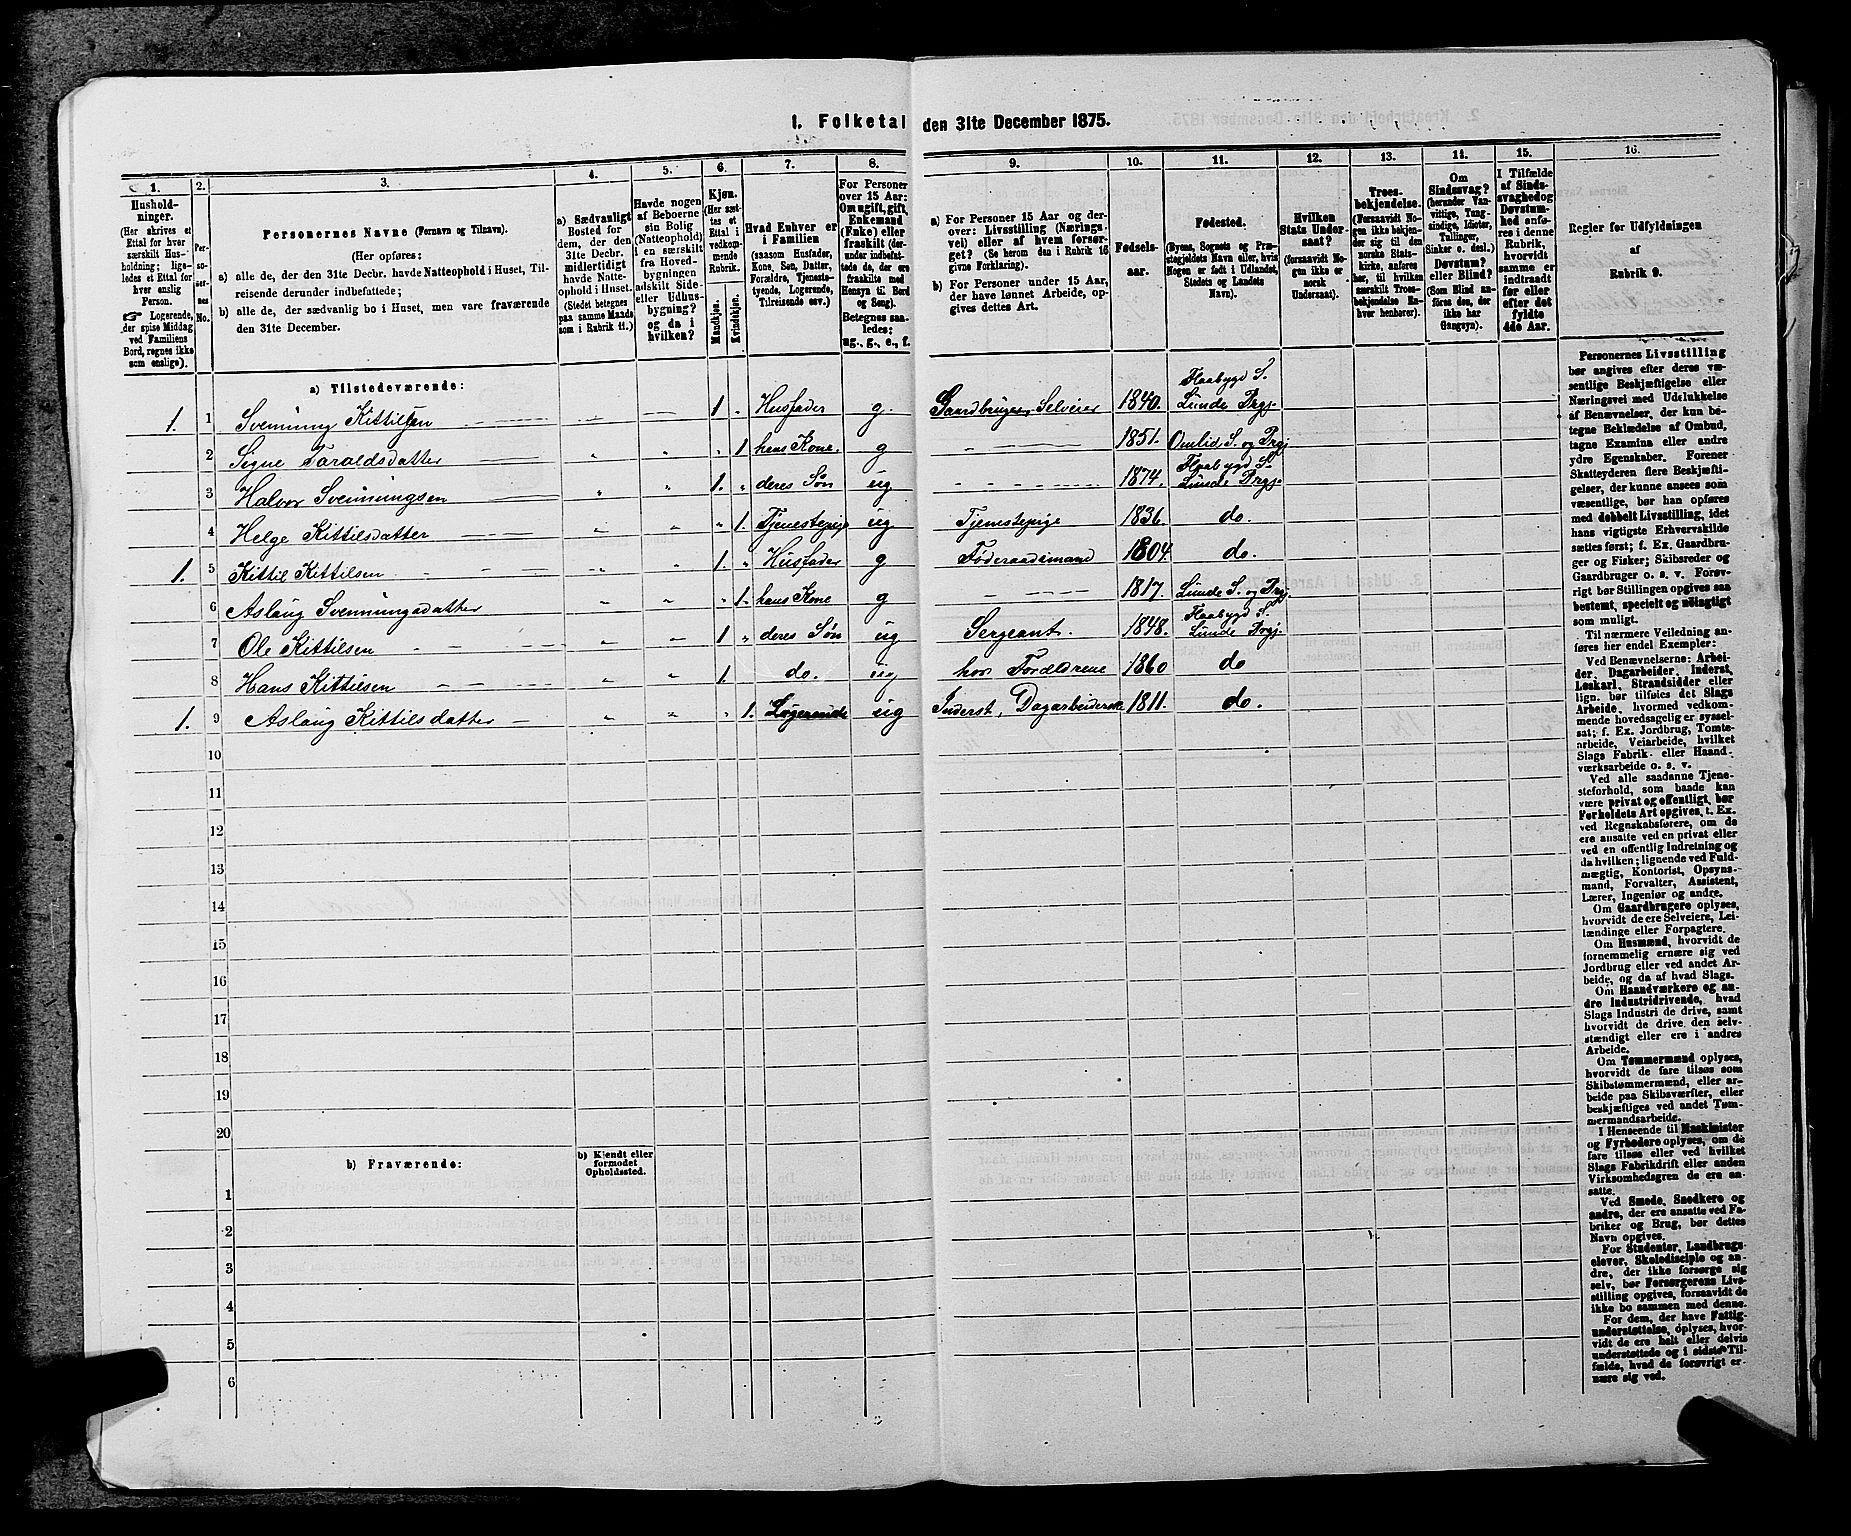 1. Folketal den 31te December 1875.
1.
Hushold-
ninger.
(Her skrives et
Ettal for hver
særskilt Hus-
holdning; lige-
ledes et Ettal for
hver enslig
Person.
Logerende,
der spise Middag
ved Familiens
Bord, regnes ikke
som enslige).
2.
Per-
so-
ner-
nes
No.
3.
Personernes Navne (Fornavn og Tilnavn).
(Her opføres:
a) alle de, der den 31te Decbr. havde Natteophold i Huset, Til-
reisende derunder indbefattede;
b) alle de, der sædvanlig bo i Huset, men vare fraværende
den 31te December.
4.
a) Sædvanligt
Bosted for
dem, der den
31te Decbr.
midlertidigt
havde Natte-
ophold i Huset.
(Stedet betegnes
paa samme Maade
som i Rubrik 11.)
5.
Havde nogen
af Beboerne
sin Bolig
(Natteophold)
i en særskilt
fra Hoved-
bygningen
adskilt Side-
eller Udhus-
bygning?
og da i
hvilken?
6.
Kjøn.
(Her sæt-
tes et
Ettal i
vedkom-
mende
Rubrik.
Mandkjøn.
Kvindekjøn.
7.
Hvad Enhver er
i Familien
(saasom Husfader,
Kone, Søn, Datter,
Forældre, Tjeneste-
tyende, Logerende,
Tilreisende osv.)
8.
For Personer
over 15 Aar:
Om ugift, gift,
Enkemand
(Enke) eller
fraskilt (der-
under indbefat-
tede de, der ere
fraskilte med
Hensyn til Bord
og Seng).
Betegnes saa-
ledes:
ug., g., e., f.
9.
a) For Personer 15 Aar og der-
over: Livsstilling (Nærings-
vei) eller af hvem forsør-
get? (Se herom den i Rubrik 16
givne Forklaring).
b) For Personer under 15 Aar,
der have lønnet Arbeide, op-
gives dettes Art.
10.
Fødsels-
aar.
11.
Fødested.
(Byens, Sognets og Præ-
stegjeldets Navn eller, hvis
Nogen er født i Udlandet,
Stedets og Landets
Navn).
12.
Hvilken
Stats Under-
saat?
(forsaavidt No-
gen ikke er
norsk
Undersaat).
13.
Troes-
bekjendelse.
(Forsaavidt No-
gen ikke bekjen-
der sig til den
norske Stats-
kirke, anføres
her, til hvilken
særskilt Troes-
bekjendelse En-
hver henhører).
14.
Om
Sindssvag?
(herunder Van-
vittige, Tung-
sindige, Idioter,
Tullinger,
Sinker o. desl.)
Døvstum?
eller Blind?
(Som Blind an-
føres den, der
ikke har
Gangsyn).
15.
I Tilfælde
af Sinds-
svaghed og
Døvstum-
hed anfø-
res i denne
Rubrik,
hvorvidt
samme er
indtraadt
før eller
efter det
fyldte
4de Aar.
16.
Regler for Udfyldningen
af
Rubrik 9.
a) Tilstedeværende:
1. 1 Svennung Kittilsen 1. Husfader g. Gaardbruger, Selveier 1840. Flaabygd S. Lunde Prgj.
2 Signe Taraldsdatter 1 hans Kone. g 1851. Omlid S. og Prgj
3 Halvor Svennungsen 1. deres Søn ug 1874. Flaabygd S. Lunde Prgj.
4 Helge Kittilsdatter 1. Tjenestepige ug Tjenestepige 1836. do.
1. 5 Kittil Kittilsen 1. Husfader g Føderaadsmand 1804. do.
6 Aslaug Svennungsdatter 1. hans Kone g 1817. Lunde S. og Prgj.
7 Ole Kittilsen 1 deres Søn ug Sergeant. 1848. Flaabygd S. Lunde Prgj.
8 Hans Kittilsen 1. do. ug hos Forældrene 1860 do
1. 9 Aslaug Kittilsdatter 1. Logerende ug Inderst, Dagarbeiderske 1811. do.
10
11
12
13
14
15
16
17
18
19
20
b) Fraværende:
b) Kjendt eller
formodet
Opholdssted.
1
2
3
4
5
6
Personernes Livsstilling
bør angives efter deres væ-
sentlige Beskjæftigelse eller
Næringsvei med Udelukkelse
af Benævnelser, der kun be-
tegne Beklædelse af Ombud,
tagne Examina eller andre
ydre Egenskaber. Forener
Skatteyderen flere Beskjæfti-
gelser, der kunne ansees som
væsentlige, bør han opføres
med dobbelt Livsstilling, idet
hans vigtigste Erhvervskilde
sættes først; f. Ex. Gaardbru-
ger og Fisker; Skibsreder og
Gaardbruger o. s. v. Forøv-
rigt bør Stillingen opgives saa
bestemt, specielt og nøiagtigt
som muligt.
Til nærmere Veiledning an-
føres her endel Exempler:
Ved Benævnelserne: Arbei-
der, Dagarbeider, Inderst,
Løskarl, Strandsidder eller
lign. bør tilføies det Slags
Arbeide, hvormed vedkom-
mende hovedsagelig er syssel-
sat; f. Ex. Jordbrug, Tomte-
arbeide, Veiarbeide, hvilket
Slags Fabrik- eller Haand-
værksarbeide o. s. v.
Ved alle saadanne Tjene-
steforhold, som baade kan
være privat og offentligt, bør
Forholdets Art opgives, t. Ex.
ved Regnskabsførere, om de
ere ansatte ved en privat eller
ved en offentlig Indretning og
da hvilken; lignende ved Fuld-
mægtig, Kontorist, Opsyns-
mand, Forvalter, Assistent,
Lærer, Ingeniør og andre.
Om Gaardbrugere oplyses,
hvorvidt de ere Selveiere, Lei-
lændinge eller Forpagtere.
Om Husmænd, hvorvidt de
fornemmelig ernære sig ved
Jordbrug eller ved andet Ar-
beide, og da af hvad Slags.
Om Haandværkere og an-
dre Industridrivende, hvad
Slags Industri de drive, samt
hvorvidt de drive den selv-
stændigt eller ere i andres
Arbeide.
Om Tømmermænd oplyses,
hvorvidt de fare tilsøs som
Skibstømmermænd, eller ar-
beide paa Skibsværfter, eller
beskjæftiges ved andet Tøm-
mermandsarbeide.
I Henseende til Maskinister
og Fyrbødere oplyses, om de
fare tilsøs eller ved hvilket
Slags Fabrikdrift eller anden
Virksomhedsgren de ere an-
satte.
Ved Smede, Snedkere og
andre, der ere ansatte ved Fa-
briker og Brug, bør dettes
Navn opgives.
For Studenter, Landbrugs-
elever, Skoledisciple og an-
dre, der ikke forsørge sig
selv, bør Forsørgerens Livs-
stilling opgives, forsaavidt de
ikke bo sammen med denne.
For dem, der have Fattig-
understøttelse, oplyses, hvor-
vidt de ere helt eller delvis
understøttede og i sidste Til-
fælde, hvad de forøvrigt er-
nære sig ved.